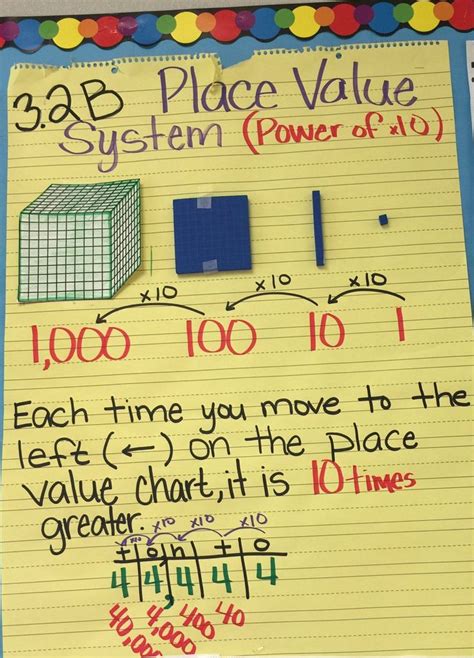 3.2B Place Value
System (Power of x10)
x10 x10 x10
1,000 100 10 1
Each time you move to the
left (←) on the place
value chart, it is 10 times
greater.
x10 x10 x10 x10
t o, h t o
4 4, 4 4 4
40,000 4,000 400 40